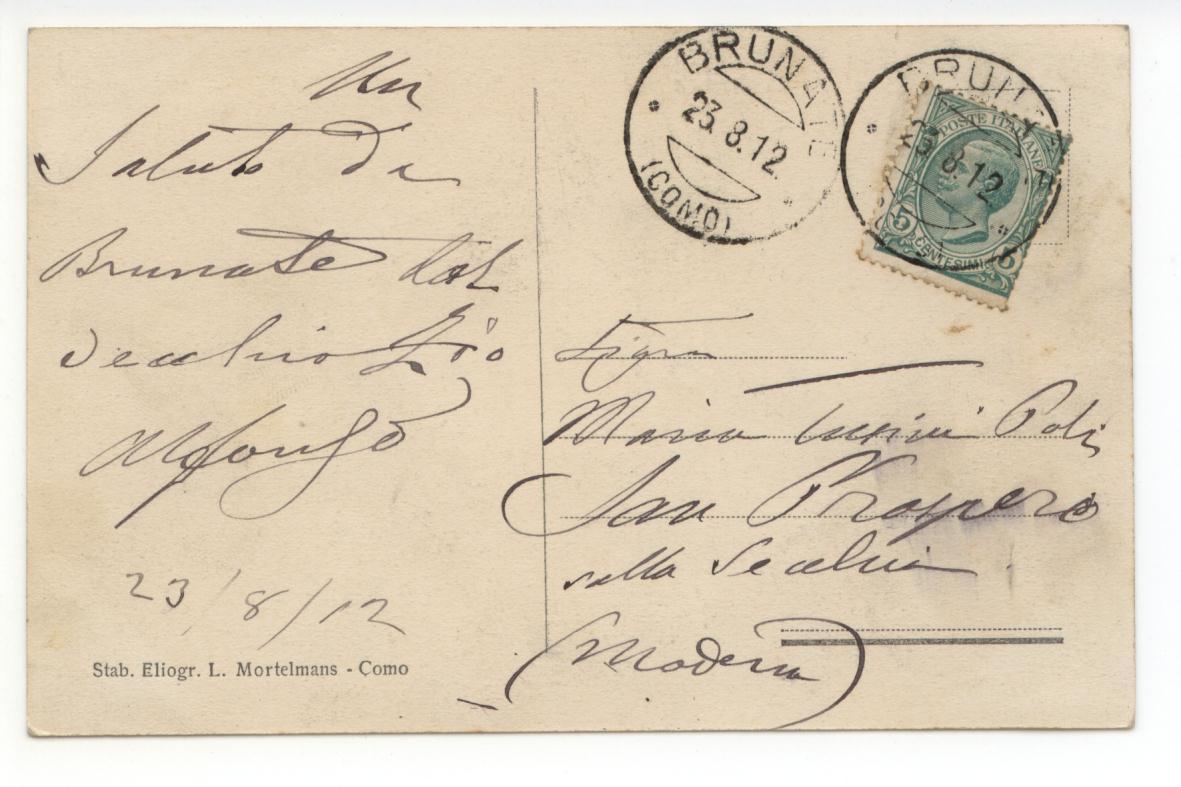 Un
Saluto di
Brunate dal
Vecchio Zio
Alfonso
23/8/12
Stab. Eliogr. L. Mortelmans - Como
BRUNATE
23.8.12
(COMO)
BRUNATE
23.8.12
POSTE ITALIANE
5 CENTESIMI 5
Sigra
Maria Poli
San Prospero
sulla Secchia
(Modena)